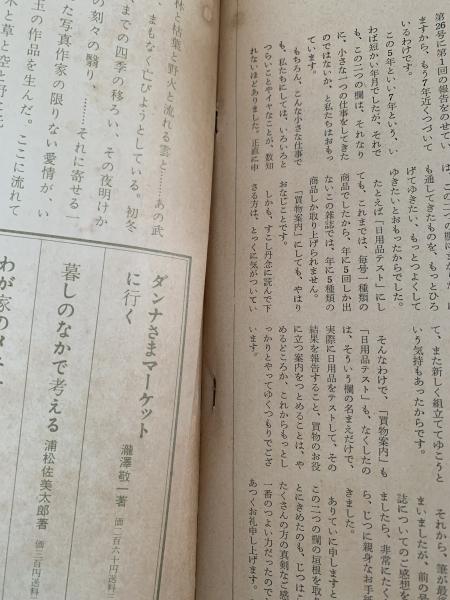 第26号に第1回の報告をのせてい
ますから、もう7年近くつづいて
いるわけです。
この5年といい7年という、い
わば短かい年月でしたが、それで
も、この二つの欄は、それなり
に、小さな一つの仕事をしてきた
のではないか、と私たちはおもっ
ています。
もちろん、こんな小さな仕事で
も、私たちにしては、いろいろと
つらいことやイヤなことが、数知
れないほどありました。正直に申
も通してきたものを、もっとひろ
げてゆきたい、もっとつよくして
ゆきたいとおもったからでした。
たとえば「日用品テスト」にし
ても、これまでは、毎号一種類の
商品でしたから、年に5回しか出
ないこの雑誌では、年に5種類の
商品しか取り上げられません。
「買物案内」にしても、やはり
おなじことです。
しかも、すこし丹念に読んで下
さる方は、とっくに気がついてい
て、また新しく組立ててゆこうと
いう気持もあったからです。
そんなわけで、「買物案内」も
「日用品テスト」も、なくしたの
は、そういう欄の名まえだけで、
実際に日用品をテストして、その
結果を報告すること、買物のお役
に立つ案内をつとめることは、や
めるどころか、これからもっとし
っかりとやってゆくつもりでござ
います。
それから、筆が最
まいましたが、前の号
誌についてのご感想を
ましたら、非常にたく
ら、じつに親身なお手紙
きました。
ありていに申しますと
この二つの欄の垣根を取
とにきめたのも、じつは
たくさんの方の真剣なご感
一番のつよい力だったので
あつくお礼申し上げます。
林と枯葉と野火と流れる雲と……あの武
、まもなく亡びようとしている。初冬
までの四季の移ろい、その夜明けか
の刻々の翳り、……それに寄せる
た写真作家の限りない愛情が、い
玉の作品を生んだ。ここに流れて
ダンナさまマーケット
に行く
瀧澤敬一著
価二百六十円送料
暮しのなかで考える
浦松佐美太郎著
価三百円送料
わが家の